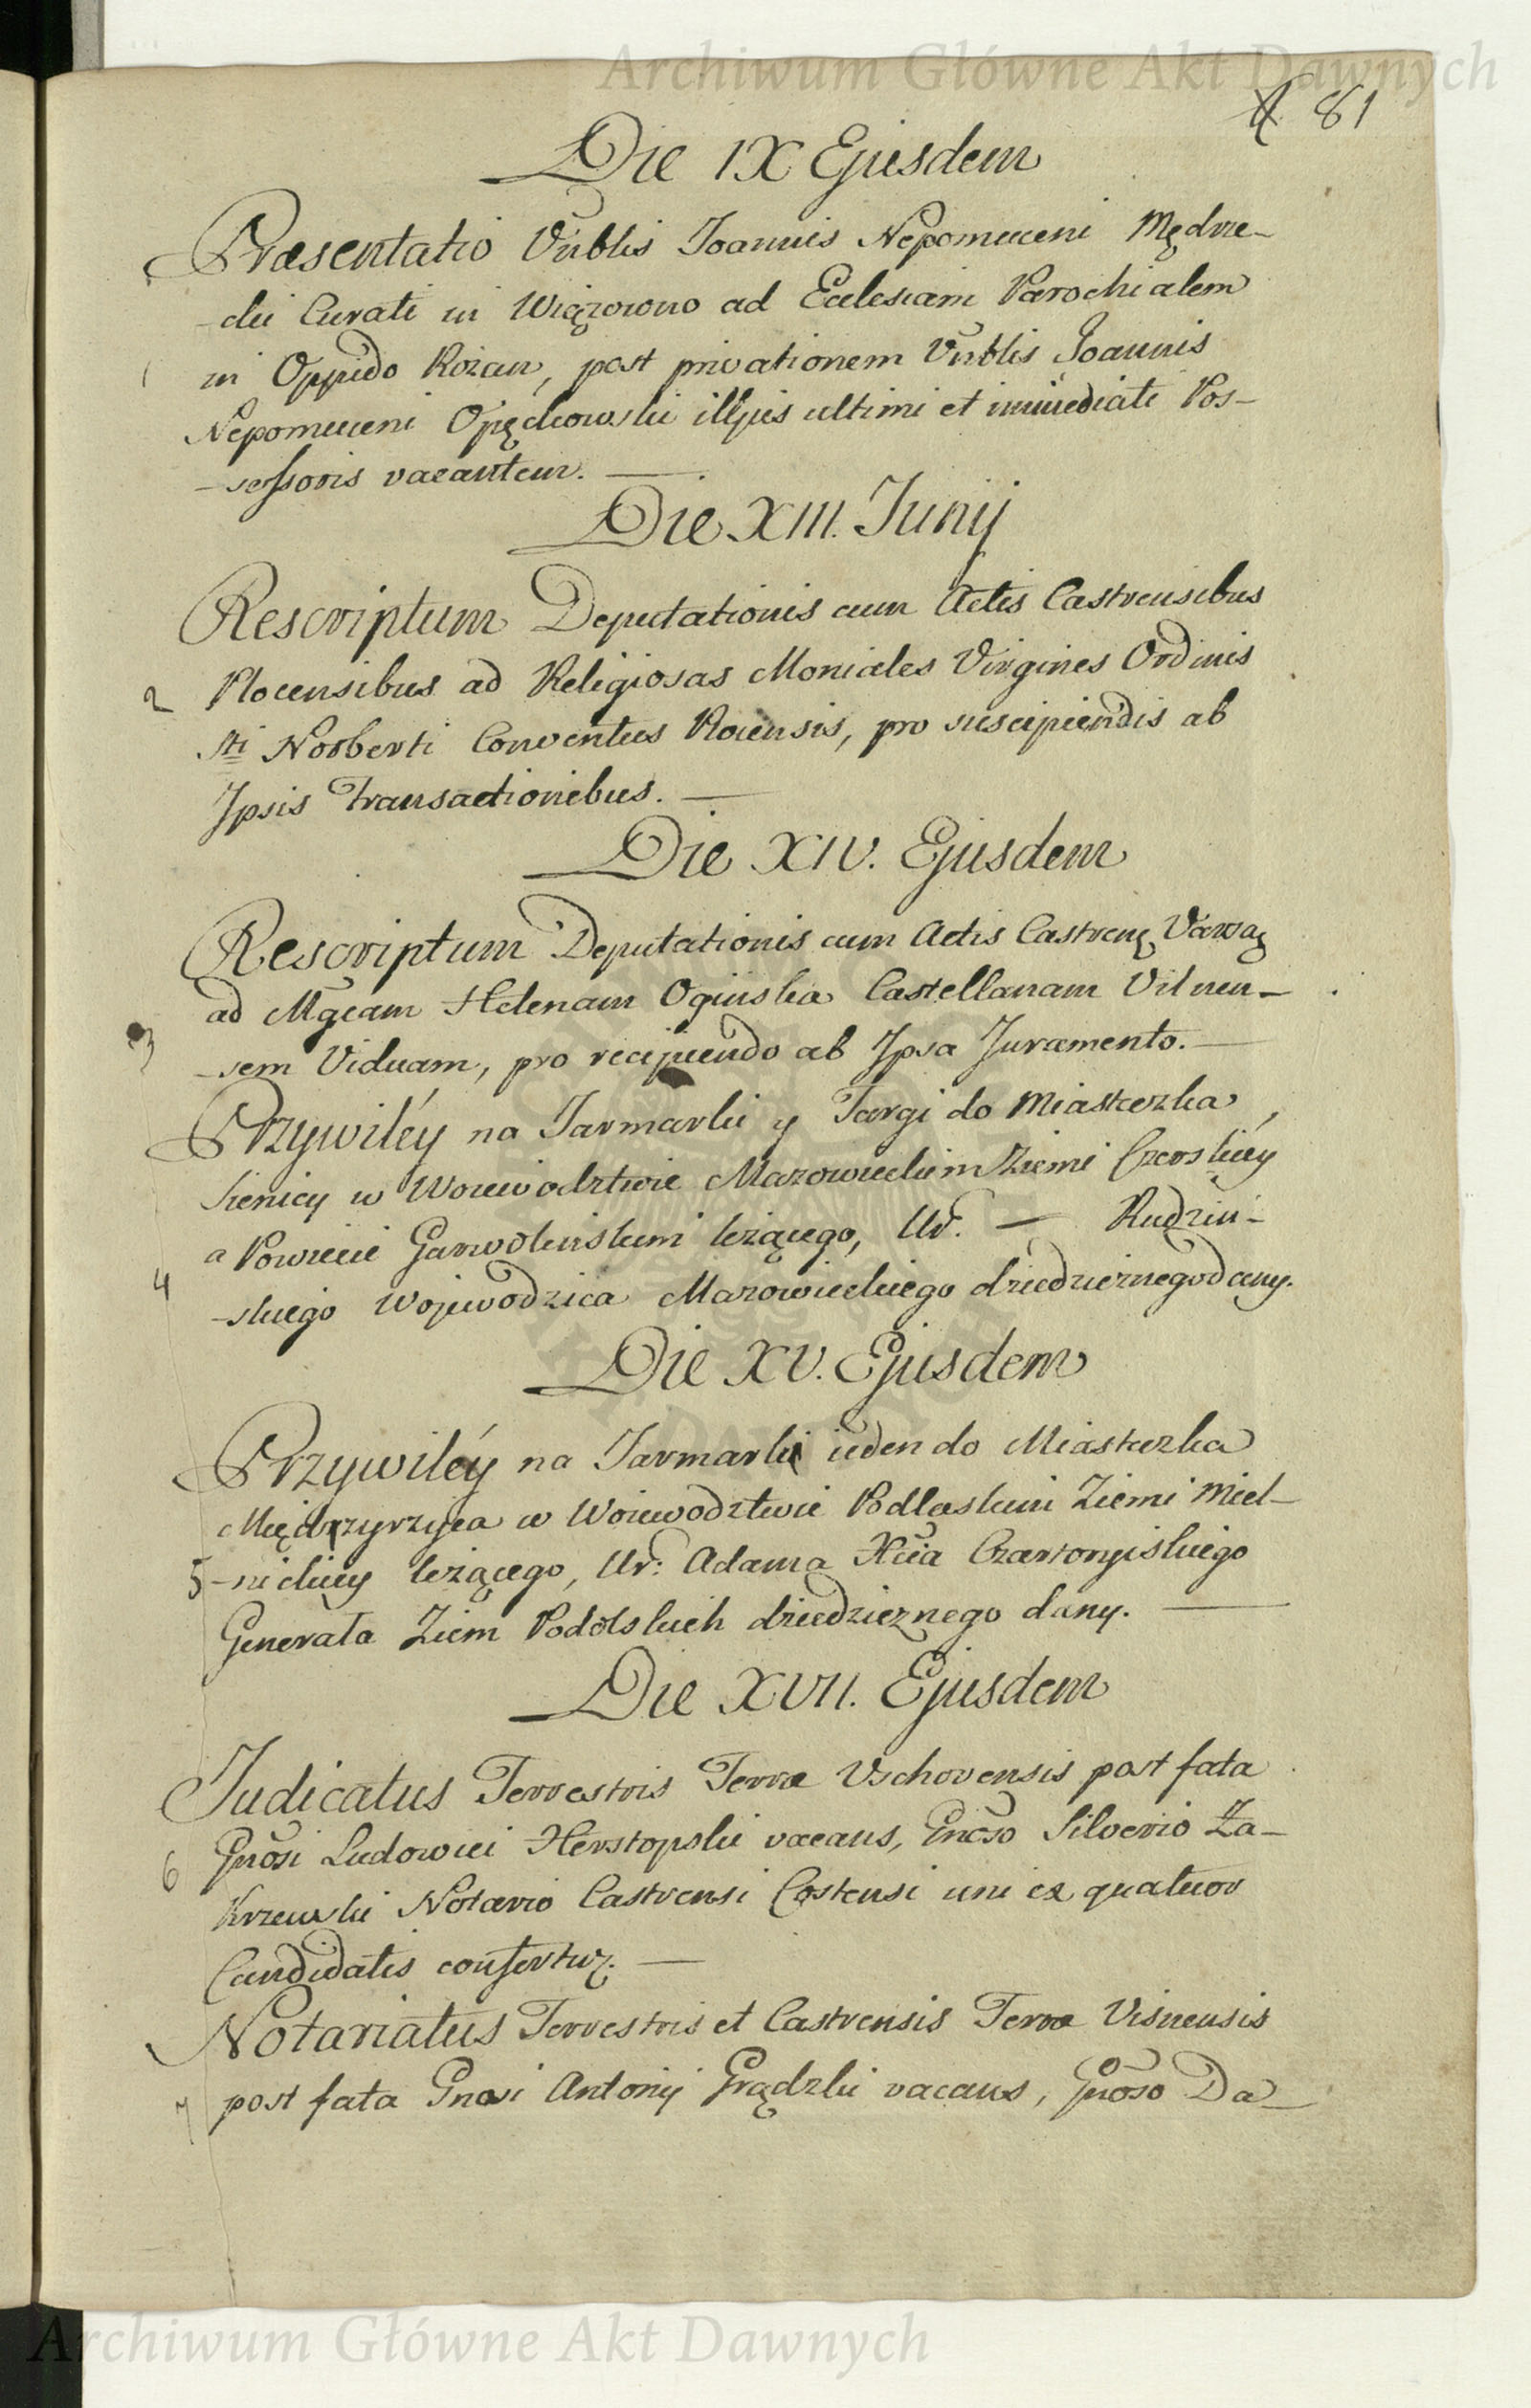 Archiwum Główne Akt Dawnych
81
Die IX Ejusdem
Præsentatio Vñblis Joannis Nepomuceni Mędrze-
-cki Curati in Wiązowno ad Ecclesiam Parochialem
1 in Oppido Rożan, post privationem Vñblis Joannis
Nepomuceni Opęchowski illius ultimi et immediati Pos-
-sessoris vacantem. —
Die XIII. Junij
Rescriptum Deputationis cum Actis Castrensibus
2 Plocensibus ad Religiosas Moniales Virgines Ordinis
Sti Norberti Conventus Plocensis, pro suscipiendis ab
Ipsis Transactionibus. —
Die XIV. Ejusdem
Rescriptum Deputationis cum Actis Castren Varsa
ad Mgcam Helenam Oginska Castellanam Vilnen-
3 -sem Viduam, pro recipiendo ab Ipsa Juramento. —
Przywiléy na Jarmarki y Targi do Miasteczka
Sienicy w Woiewodztwie Mazowieckim Ziemi Czerskiey
a Powiecie Garwolinskim leżącego, Ur. — Rudzin-
4 -skiego Wojewodzica Mazowieckiego dziedzicznego dany.
Die XV. Ejusdem
Przywiléy na Jarmark ieden do Miasteczka
Międzyrzyca w Woiewodztwie Podlaskim Ziemi Miel-
5 -nickiey leżącego, Ur: Adama Xcia Czartoryiskiego
Generała Ziem Podolskich dziedzicznego dany. —
Die XVII. Ejusdem
Judicatus Terrestris Terræ Vschovensis post fata
6 Gnosi Ludowici Herstopski vacans, Gnoso Silverio Za-
Krzewski Notario Castrensi Costensi uni ex quatuor
Candidatis confertur. —
Notariatus Terrestris et Castrensis Terræ Visnensis
7 post fata Gnosi Antonij Grądzki vacans, Gnoso Da-
Archiwum Główne Akt Dawnych